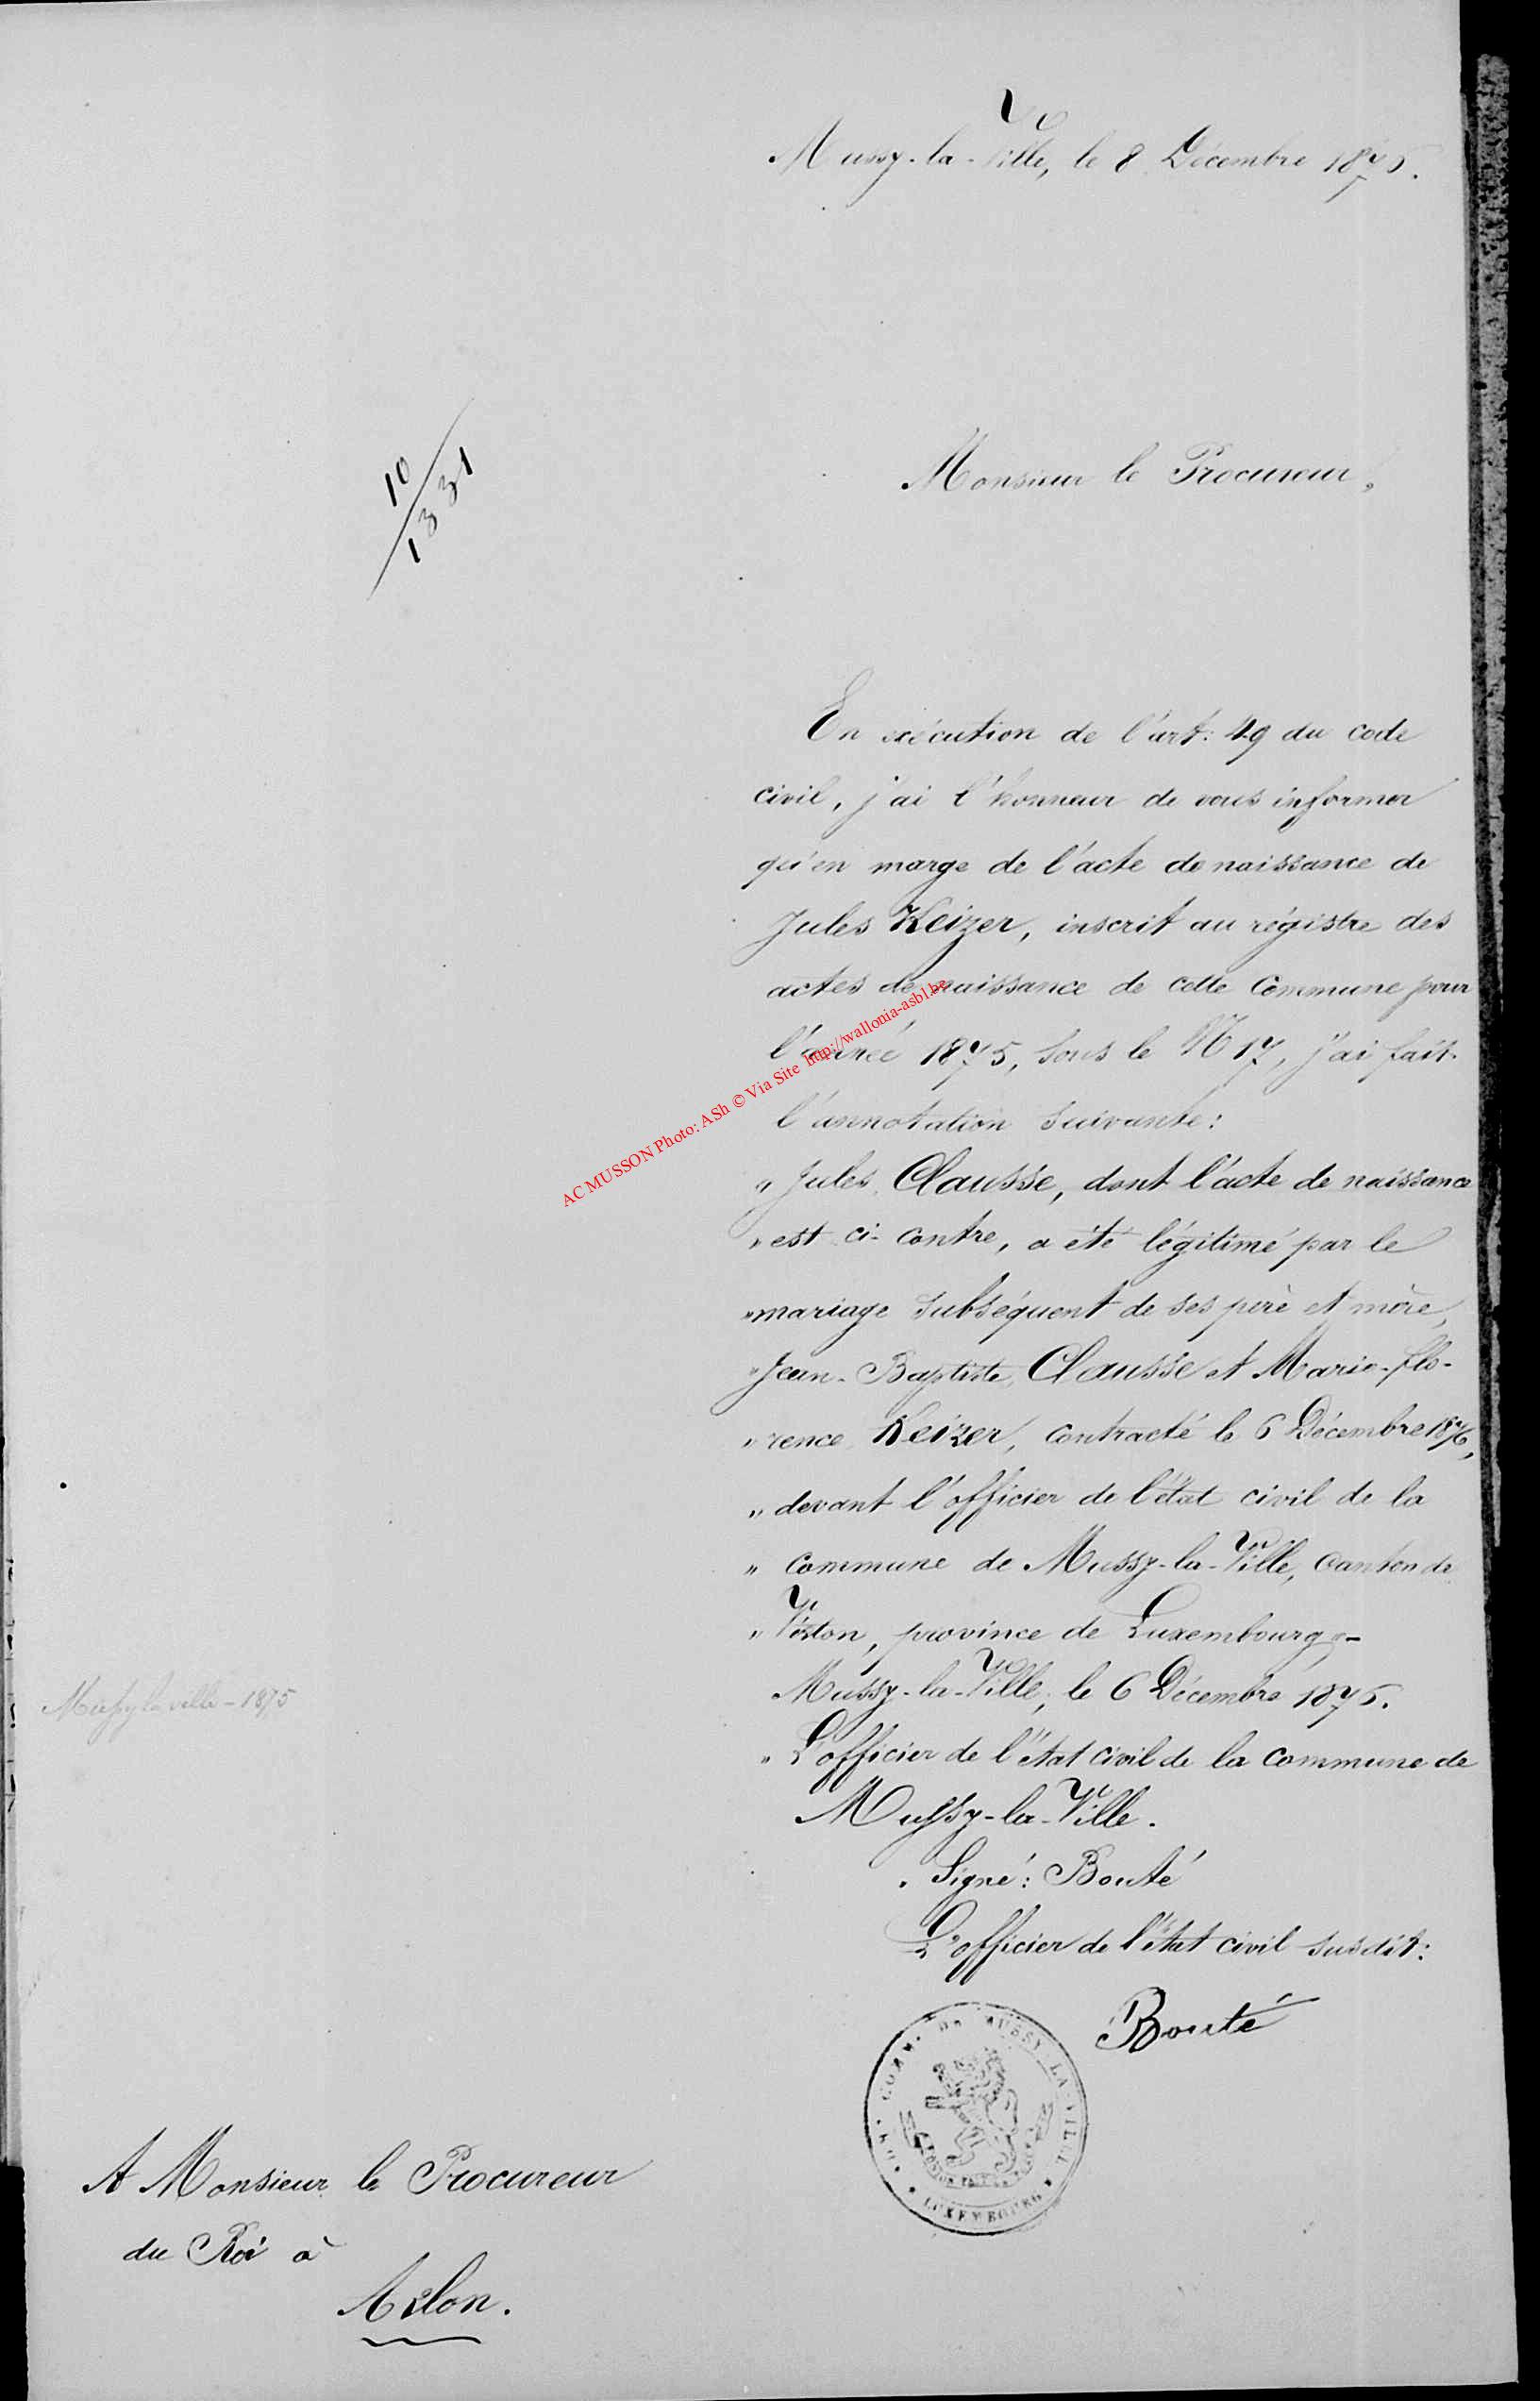 Mussy-la-Ville, le 8 Décembre 1876.
10
1331
Monsieur le Procureur,
En exécution de l'art: 49 du code
civil, j'ai l'honneur de vous informer
qu'en marge de l'acte de naissance de
Jules Keizer, inscrit au régistre des
actes de naissance de cette Commune pour
l'année 1875, sous le N 17, j'ai fait
l'annotation suivante:
" Jules Clausse, dont l'acte de naissance
" est ci-contre, a été légitimé par le
" mariage subséquent de ses père et mère,
" Jean-Baptiste Clausse et Marie-flo-
" rence Keizer, contracté le 6 Décembre 1876,
" devant l'officier de l'état civil de la
" commune de Mussy-la-Ville, Canton de
" Virton, province de Luxembourg "-
Mussy-la-Ville, le 6 Décembre 1876.
" L'officier de l'état civil de la commune de
Mussy-la-Ville.
Signé: Bouté
L'officier de l'état civil susdit:
Bouté
COMM. DE MUSSY-LA-VILLE
LUXEMBOURG
Mussy la ville - 1875
A Monsieur le Procureur
du Roi à
Arlon.
AC MUSSON Photo: ASh © Via Site http://wallonia-asbl.be